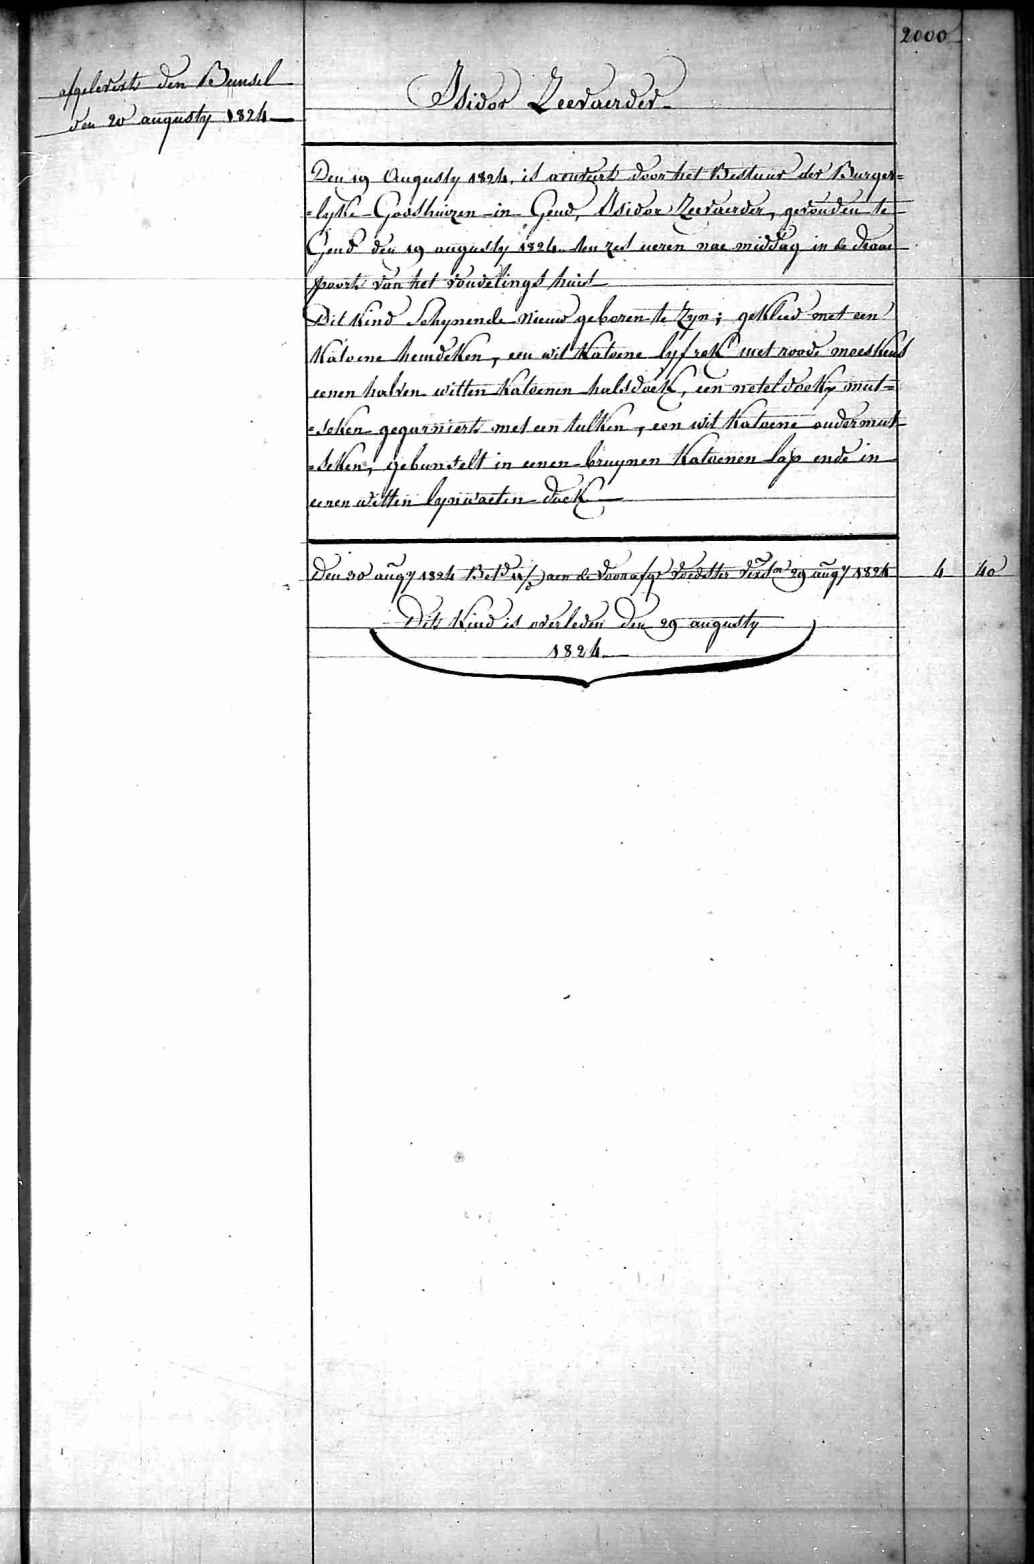 2000
afgelevert den Bunsel
den 20 augusty 1824
Isidor Zeevaerder
Den 19 Augusty 1824, is aenveert door het Bestuur der Burger=
=lyke Godshuizen in Gend, Isidor Zeevaerder, gevonden te
Gend den 19 augusty 1824 ten zes ueren nae middag in de draae
poort van het vondelings huis
Dit Kind Schynende nieuw geboren te Zyn; gekleed met een
Katoene hemdeken, een wit Katoene lyfrok met roode moeskens
eenen halven witten Katoenen halsdoek, een neteldoekx mut=
=seken gegarniert met een tulken, een wit Katoene ondermut
=seken, gebunselt in eenen bruynen Katoenen lap ende in
eenen witten lynwaeten doek
Den 30 augy 1824 Betd aen de voorafge voedster 29 augy 1824 4 40
Dits Kind is overleden den 29 augusty
1824